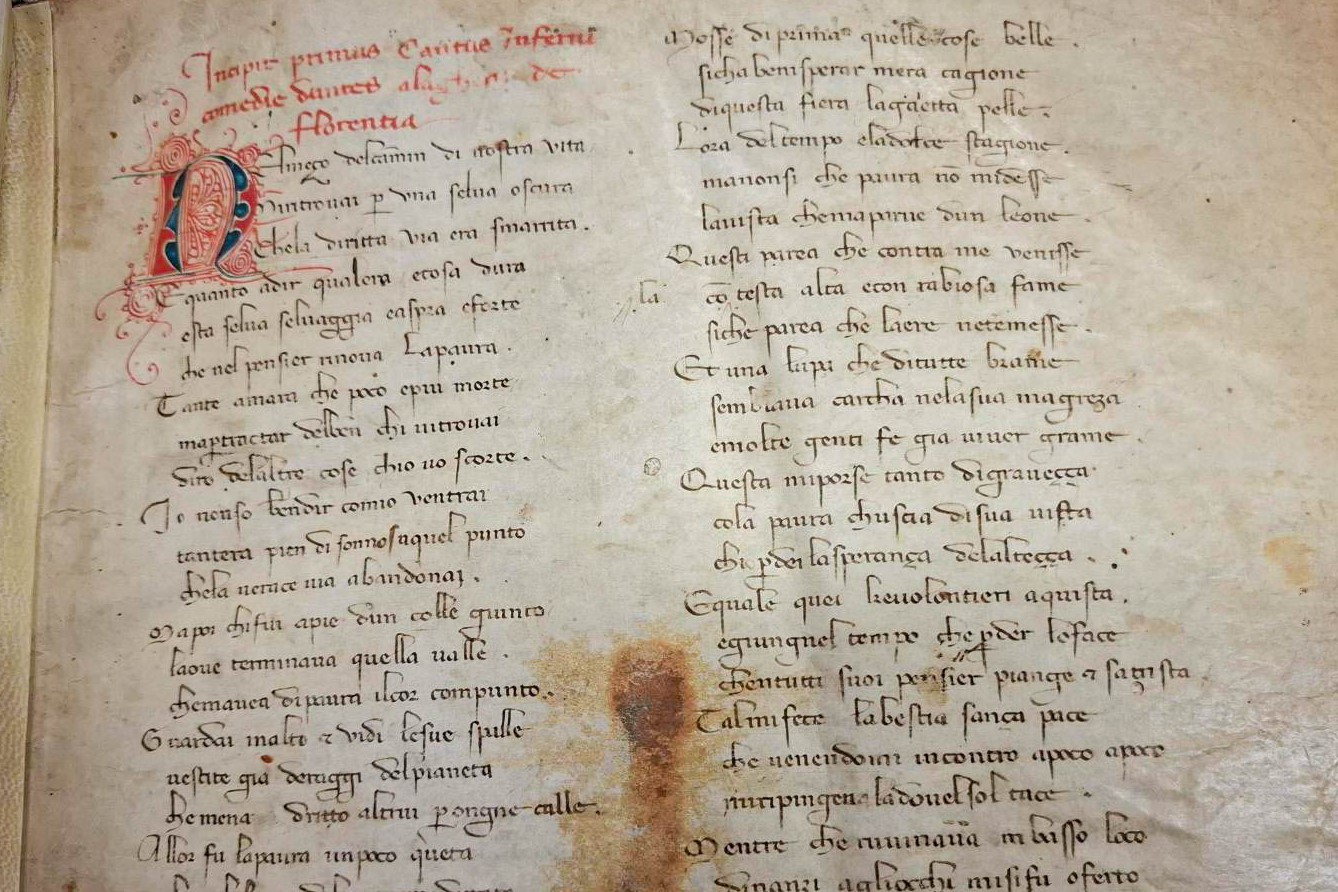 Incipit primus Cantus Inferni
comedie dantes alagherii de
florentia
Nelmeço delcamin di nostra vita
miritrovai p una selva oscura
chela diritta via era smarrita.
E quanto adir qualera ecosa dura
esta selva selvaggia easpra eforte
che nel pensier rinova Lapaura.
Tante amara che poco epiu morte
mapertractar delben chi vitrovai
diro delaltre cose chio vo scorte.
Io nonso bendir comio ventrai
tantera pien di sonno suquel punto
chela verace via abandonai.
Mapoi chifui apie dun colle giunto
laove terminava quella valle.
chemavea dipaura ilcor compunto.
Guardai inalto & vidi lesue spalle
vestite gia deraggi delpianeta
chemena dritto altrui p ongne calle.
Allor fu lapaura unpoco queta
Mosse diprima quelle cose belle.
sicha benisperar mera cagione
diquesta fiera lagaetta pelle.
Lora deltempo eladolce stagione.
manonsi che paura nō midesse
lavista chemaparve dun leone.
Questi parea che contra me venisse
cō la testa alta econ rabiosa fame
siche parea che laere netemesse.
Et una lupa che ditutte brame
sembiava carcha nelasua magreza
emolte genti fe gia viver grame.
Questa miporse tanto digraveçça
cola paura chuscia disua vista
chi pdei lasperança delalteçça.
Equale quei kevolontieri aquista.
egiungnel tempo che pder loface
chentutti suoi pensier piange & satrista.
Talmifece labestia sança pace
che venendomi incontro apoco apoco
miripingea ladovelsol tace.
Mentre che ruvinava in basso loco
dinanzi agliocchi misifu oferto